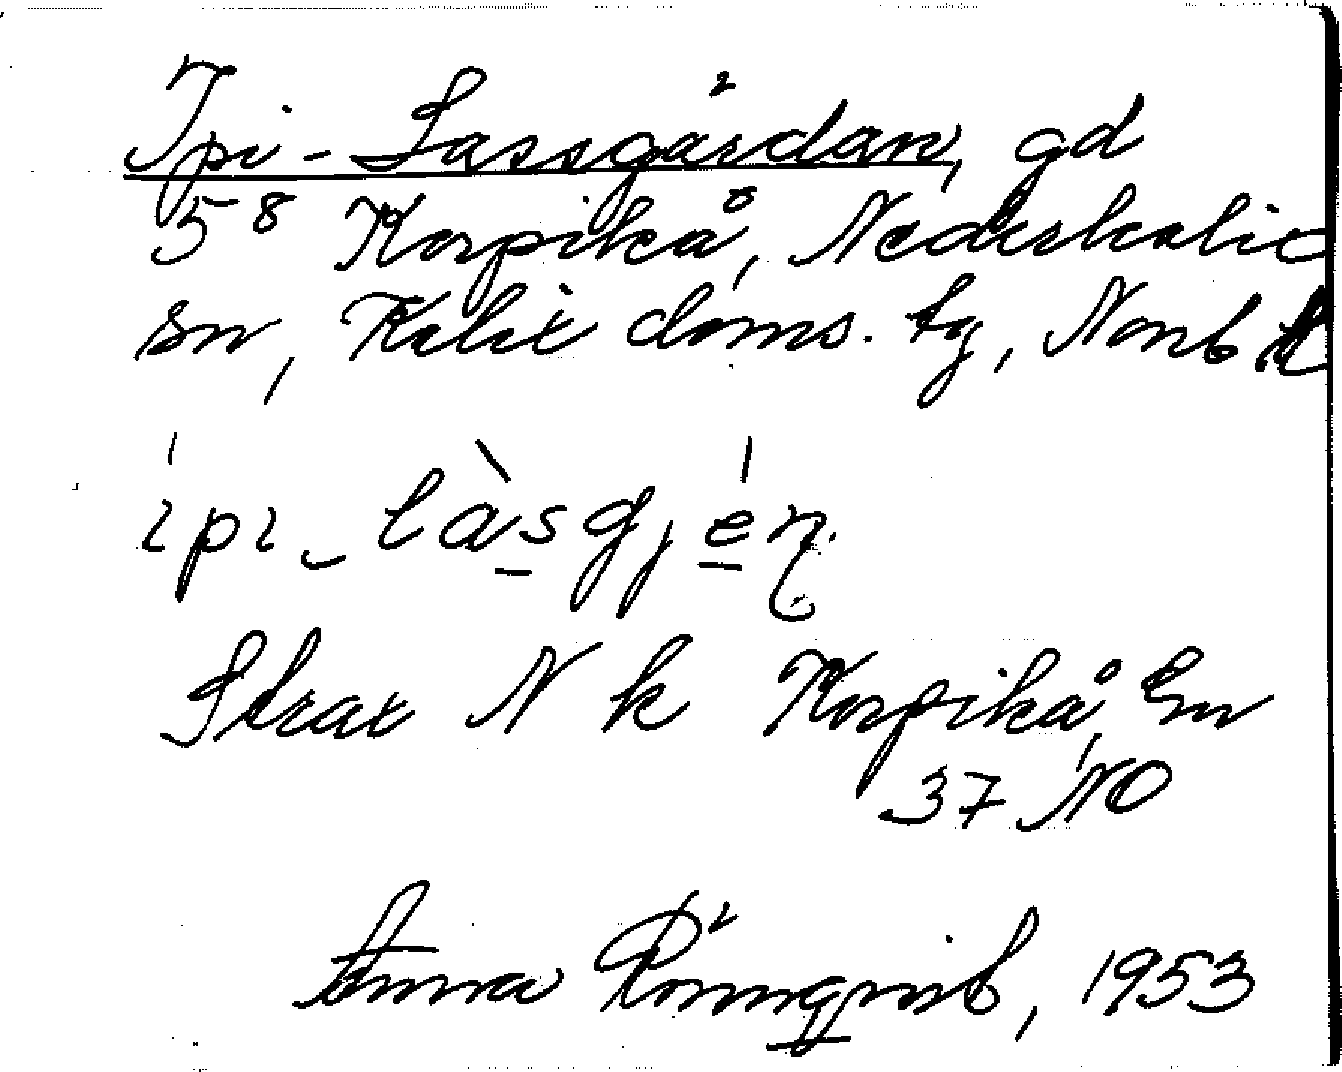 Ipi-Lassgårdan, gd
5⁸ Korpikå, Nederkalix
sn, Kalix doms. tg, Norrb l
ipi-làsgjén
Strax N k Korpikå, En
37 NO
Anna Rönnqvist, 1953